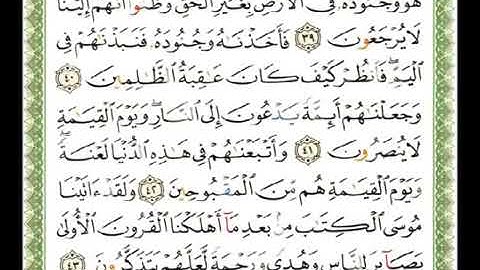 هُوَ وَجُنُودُهُۥ فِى ٱلْأَرْضِ بِغَيْرِ ٱلْحَقِّ وَظَنُّوٓا۟ أَنَّهُمْ إِلَيْنَا
لَا يُرْجَعُونَ ٣٩ فَأَخَذْنَٰهُ وَجُنُودَهُۥ فَنَبَذْنَٰهُمْ فِى
ٱلْيَمِّ ۖ فَٱنظُرْ كَيْفَ كَانَ عَٰقِبَةُ ٱلظَّٰلِمِينَ ٤٠
وَجَعَلْنَٰهُمْ أَئِمَّةً يَدْعُونَ إِلَى ٱلنَّارِ ۖ وَيَوْمَ ٱلْقِيَٰمَةِ
لَا يُنصَرُونَ ٤١ وَأَتْبَعْنَٰهُمْ فِى هَٰذِهِ ٱلدُّنْيَا لَعْنَةً ۖ
وَيَوْمَ ٱلْقِيَٰمَةِ هُم مِّنَ ٱلْمَقْبُوحِينَ ٤٢ وَلَقَدْ ءَاتَيْنَا
مُوسَى ٱلْكِتَٰبَ مِنۢ بَعْدِ مَآ أَهْلَكْنَا ٱلْقُرُونَ ٱلْأُولَىٰ
بَصَآئِرَ لِلنَّاسِ وَهُدًى وَرَحْمَةً لَّعَلَّهُمْ يَتَذَكَّرُونَ ٤٣